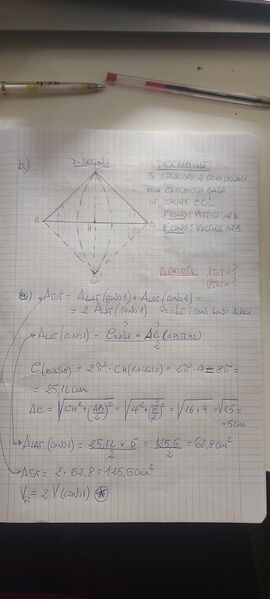 b.)
DISEGNO
DESCRIZIONE
SI OTTENGONO 2 CONI UGUALI
CON CERCHIO DI BASE
IN COMUNE CC'.
1° CONO: VERTICE IN A
2° CONO: VERTICE IN B
C
A
H
B
C'
RICHIESTA ATOT = ?
VTOT = ?
c) ATOT = ALAT (CONO1) + ALAT (CONO 2) =
= 2 ALAT (CONO 1) POICHÉ I CONI SONO UGUALI
ALAT (CONO 1) = C BASE × AC (APOTEMA)
2
C (BASE) = 2π · CH (RAGGIO) = 2π · 4 = 8π =
= 25,12 cm
AC = √CH² + (AB/2)² = √4² + (6/2)² = √16+9 = √25 =
= 5cm
ALAT (CONO 1) = 25,12 × 5 / 2 = 125,6 / 2 = 62,8 cm²
ATOT = 2 · 62,8 = 125,6 cm²
VT = 2 V (CONO 1)